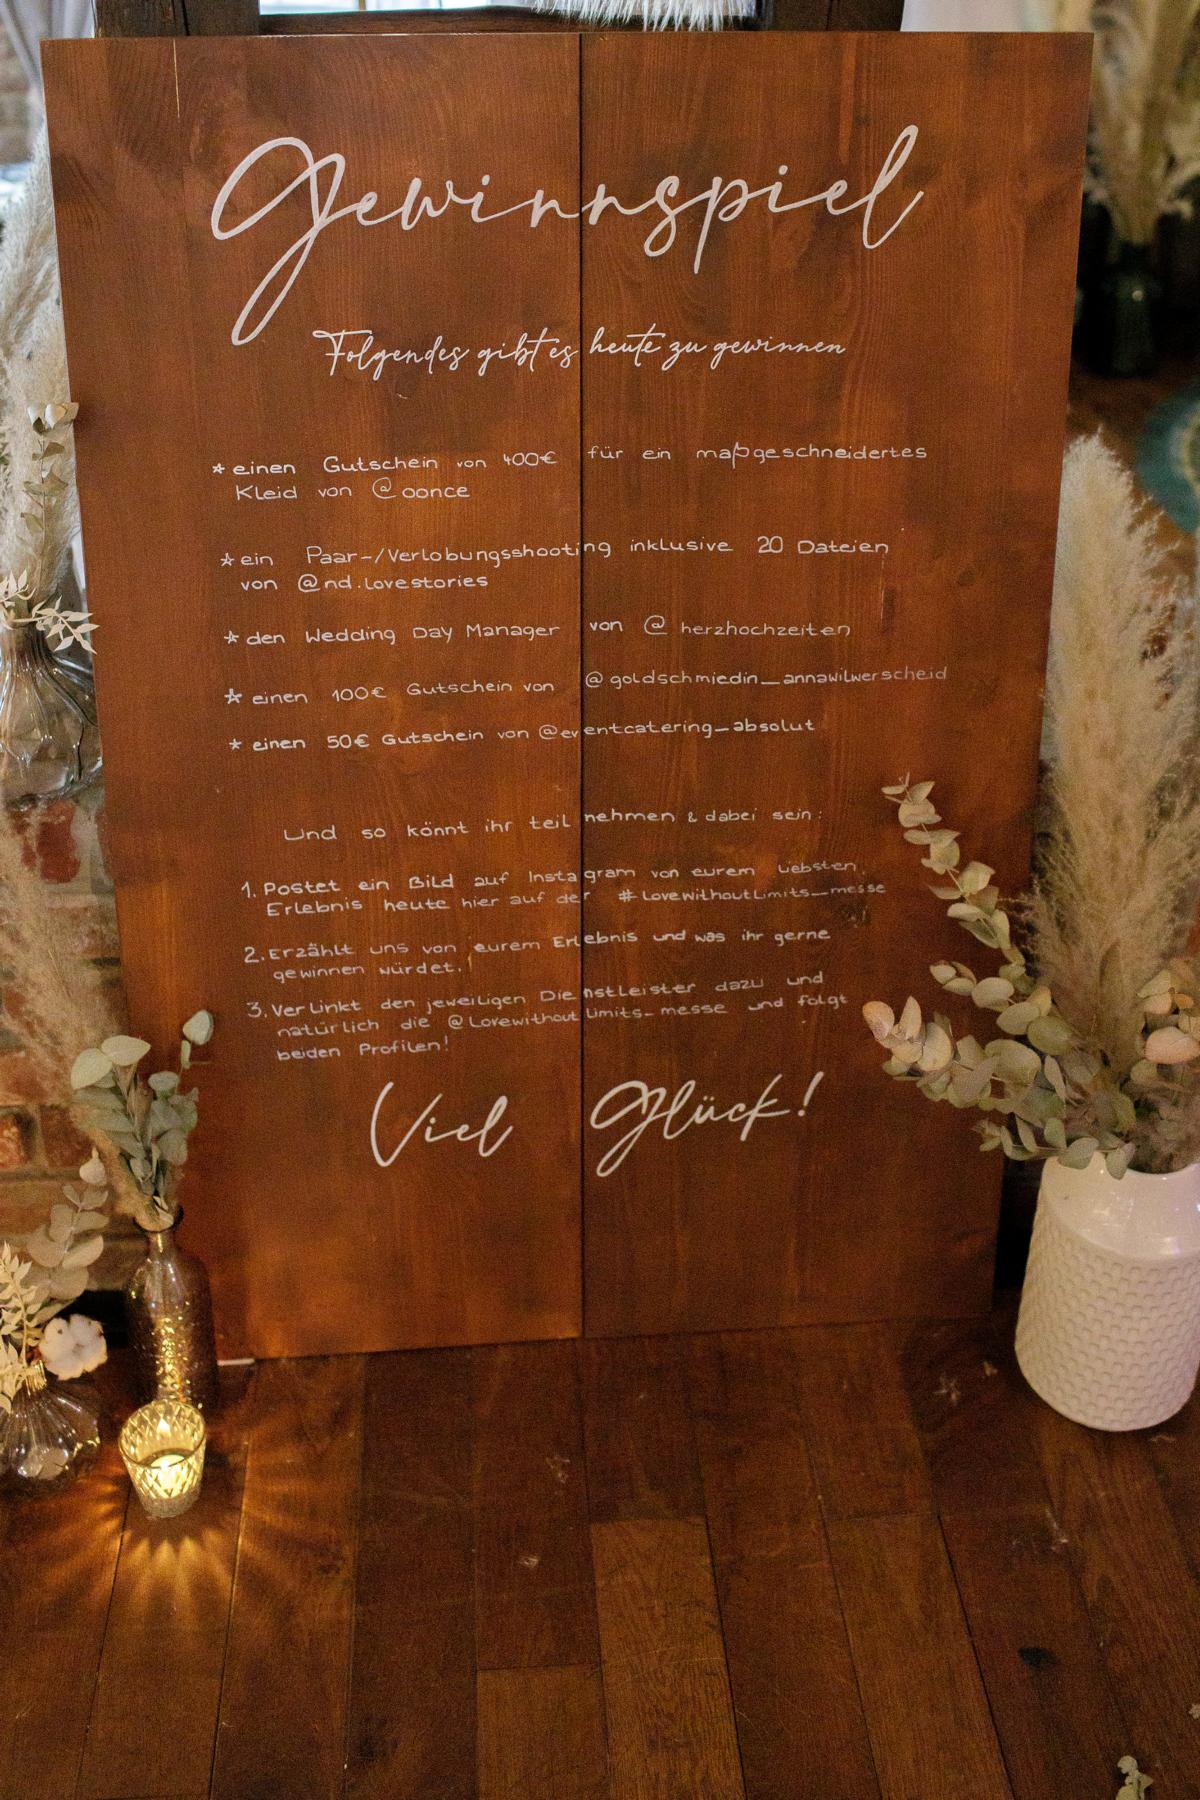 Gewinnspiel
Folgendes gibt es heute zu gewinnen
* einen Gutschein von 400€ für ein maßgeschneidertes
Kleid von @oonce
* ein Paar-/Verlobungsshooting inklusive 20 Dateien
von @nd.lovestories
* den Wedding Day Manager von @herzhochzeiten
* einen 100€ Gutschein von @goldschmiedin_annawilwerscheid
* einen 50€ Gutschein von @eventcatering_absolut
Und so könnt ihr teilnehmen & dabei sein:
1. Postet ein Bild auf Instagram von eurem liebsten
Erlebnis heute hier auf der #LovewithoutLimits_messe
2. Erzählt uns von eurem Erlebnis und was ihr gerne
gewinnen würdet.
3. Verlinkt den jeweiligen Dienstleister dazu und
natürlich die @LovewithoutLimits_messe und folgt
beiden Profilen!
Viel Glück!